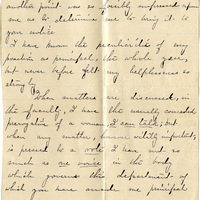 another point was so forcibly impressed upon
me as to determine me to bring it to
your notice
I have known the peculiarities of my
position as principal, the whole year,
but never before felt my helplessness so
strongly.
When matters are discussed, in
the faculty, I have the usually accorded
prerogative of a woman, I can talk; but
when any matter, however vitally important,
is pressed to a vote I have not so
much as one voice in the body
which governs this department of
which you have made me principal